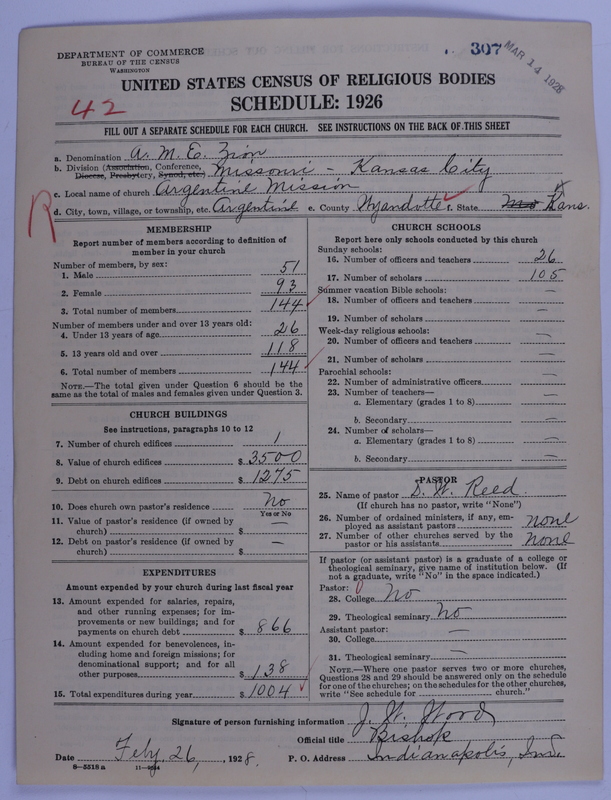 DEPARTMENT OF COMMERCE
BUREAU OF THE CENSUS
WASHINGTON
307
MAR 14 1928
42
UNITED STATES CENSUS OF RELIGIOUS BODIES
SCHEDULE: 1926
FILL OUT A SEPARATE SCHEDULE FOR EACH CHURCH. SEE INSTRUCTIONS ON THE BACK OF THIS SHEET
a. Denomination A. M. E. Zion
b. Division (Association, Conference, Diocese, Presbytery, Synod, etc.) Missouri - Kansas City
c. Local name of church Argentine Mission
d. City, town, village, or township, etc. Argentine e. County Wyandotte f. State Mo Kans.
R
MEMBERSHIP
Report number of members according to definition of
member in your church
Number of members, by sex:
1. Male 51
2. Female 93
3. Total number of members 144
Number of members under and over 13 years old:
4. Under 13 years of age 26
5. 13 years old and over 118
6. Total number of members 144
NOTE.—The total given under Question 6 should be
same as the total of males and females given under Question 3.
CHURCH BUILDINGS
See instructions, paragraphs 10 to 12
7. Number of church edifices 1
8. Value of church edifices $ 3500
9. Debt on church edifices $ 1275
10. Does church own pastor's residence No
Yes or No
11. Value of pastor's residence (if owned by
church) $ —
12. Debt on pastor's residence (if owned by
church) $ —
EXPENDITURES
Amount expended by your church during last fiscal year
13. Amount expended for salaries, repairs,
and other running expenses; for im-
provements or new buildings; and for
payments on church debt $ 866
14. Amount expended for benevolences, in-
cluding home and foreign missions; for
denominational support; and for all
other purposes $ 138
15. Total expenditures during year $ 1004
CHURCH SCHOOLS
Report here only schools conducted by this church
Sunday schools:
16. Number of officers and teachers 26
17. Number of scholars 105
Summer vacation Bible schools:
18. Number of officers and teachers —
19. Number of scholars —
Week-day religious schools:
20. Number of officers and teachers —
21. Number of scholars —
Parochial schools:
22. Number of administrative officers —
23. Number of teachers—
a. Elementary (grades 1 to 8) —
b. Secondary —
24. Number of scholars—
a. Elementary (grades 1 to 8) —
b. Secondary —
PASTOR
25. Name of pastor D. W. Reed
(If church has no pastor, write "None")
26. Number of ordained ministers, if any, em-
ployed as assistant pastors none
27. Number of other churches served by the
pastor or his assistants none
If pastor (or assistant pastor) is a graduate of a college or
theological seminary, give name of institution below. (If
not a graduate, write "No" in the space indicated.)
Pastor:
28. College No
29. Theological seminary No
Assistant pastor:
30. College —
31. Theological seminary —
NOTE.—Where one pastor serves two or more churches,
Questions 28 and 29 should be answered only on the schedule
for one of the churches; on the schedules for the other churches,
write "See schedule for church."
Signature of person furnishing information J. W. Wood
Official title Bishop
Date Feby. 26, 1928. P. O. Address Indianapolis, Ind.
8—5518 a